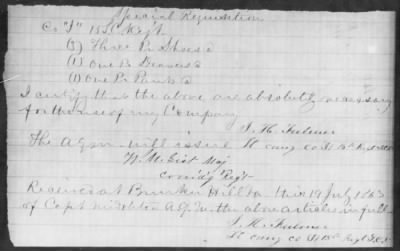 Special Requisition
Co "I" 15 SC Regt
(3) Three Pr Shoes
(1) One Pr Drawers
(1) One Pr Pants
I certify that the above are absolutely necessary
for the use of my Company
J. H. Fulmer
Lt comg co
The A.Q.M. will issue
W. M. Gist Maj
comdg Regt
Received at Bunker Hill Va this 19 July 1863
of Capt Middleton A.Q.M. the above articles in full
J. H. Fulmer
Lt comg co